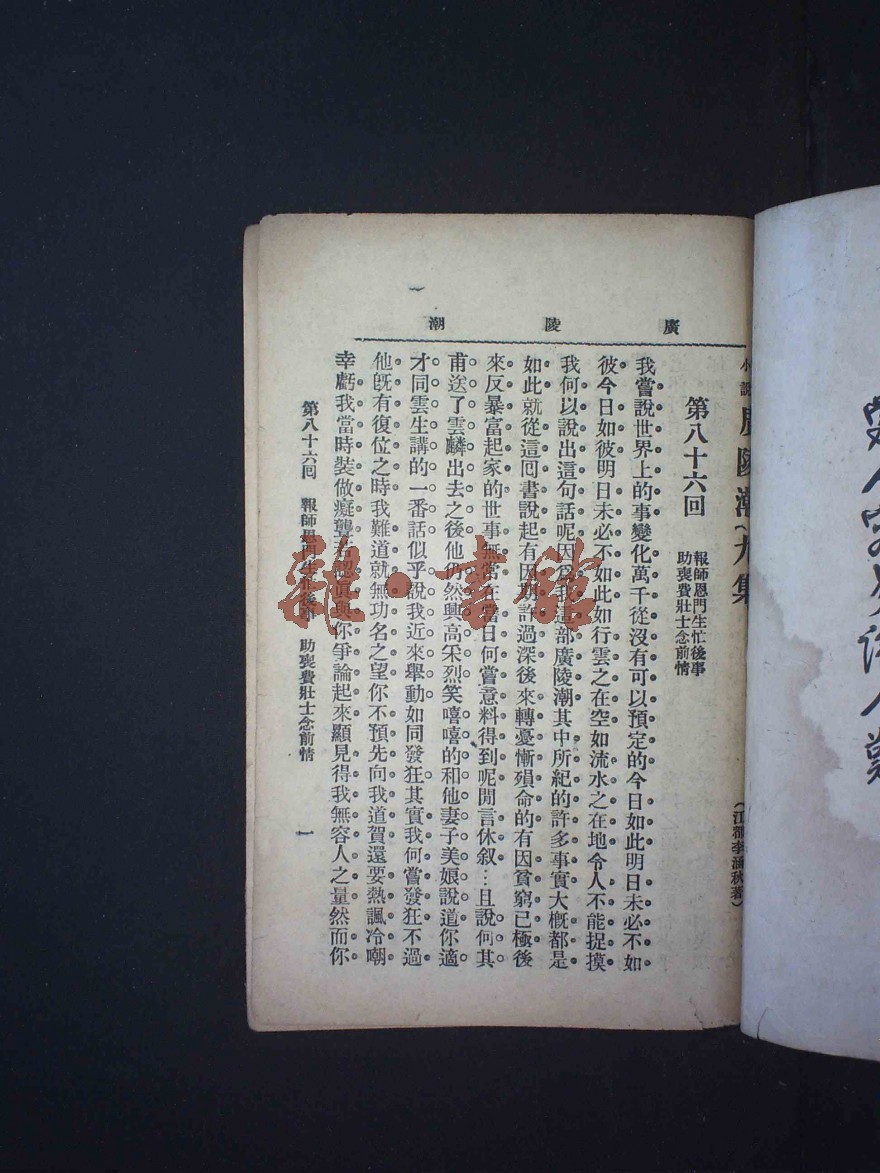 廣陵潮
小說 廣陵潮(九集
(江都李涵秋著)
第八十六回
報師恩門生忙後事
助喪費壯士念前情
我嘗說世界上的事變化萬千從沒有可以預定的今日如此明日未必不如
彼今日如彼明日未必不如此如行雲之在空如流水之在地令人不能捉摸
我何以說出這句話呢因爲我這部廣陵潮其中所紀的許多事實大槪都是
如此就從這回書說起有因期許過深後來轉憂慚殞命的有因貧窮已極後
來反暴富起家的世事無常在當日何嘗意料得到呢閒言休叙…且說何其
甫送了雲麟出去之後他仍然興高采烈笑嘻嘻的和他妻子美娘說道你適
才同雲生講的一番話似乎說我近來舉動如同發狂其實我何嘗發狂不過
他旣有復位之時我難道就無功名之望你不預先向我道賀還要熱諷冷嘲
幸虧我當時裝做癡聾若認眞與你爭論起來顯見得我無容人之量然而你
第八十六回 報師恩門生忙後事 助喪費壯士念前情 一
雜·書館